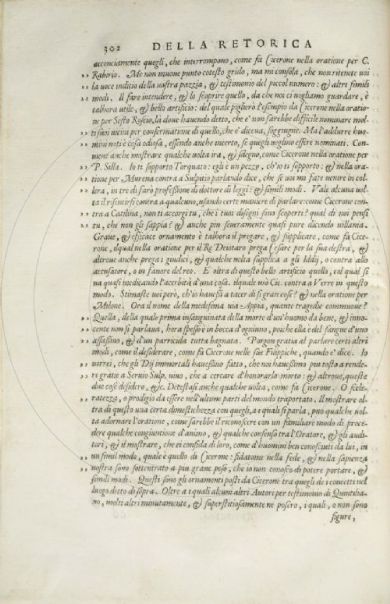 302 DELLA RETORICA
accenciamente quegli, che interrompono, come fà Cicerone nella oratione per C.
Rabirio. Me non muoue punto cotesto grido, ma mi consola, che non ritenete voi
la voce inditio della vostra pazzia, & testimonio del piccol numero: & altri simili
modi. Il fare intendere, & lo scoprire quello, da che noi ci vogliamo guardare, è
talhora vtile, & bello artificio: del quale piglierò l'esempio da Cicerone nella oratio-
ne per Sesto Roscio, là doue hauendo detto, che e' non sarebbe difficile nominare mol-
ti suoi vicini per confermatione di quello, che e' diceua, soggiugne. Ma l'addurre huo-
mini noti è cosa odiosa, essendo anche incerto, se quegli voglino essere nominati. Con-
uiene anche mostrare qualche volta ira, & sdegno, come Cicerone nella oratione per
P. Silla. Io ti sopporto Torquato: egli è vn pezzo, ch'io ti sopporto: & nella ora-
tione per Murena contra à Sulpitio parlando dice, che se voi mi fate venire in col-
lera, in tre dì farò professione di dottore di leggi: & simili modi. Vale alcuna vol-
ta il risentirsi contra à qualcuno, usando certe maniere di parlare come Cicerone con-
tro à Catilina, non ti accorgi tu, che i tuoi disegni sono scoperti? qual di noi pensi
tu, che non gli sappia? & anche piu sinceramente quasi pure dicendo villania.
Graue, & efficace ornamento è talhora il pregare, & supplicare, come fà Cice-
rone, il qual nella oratione per il Re Deiotaro prega Cesare per la sua destra, &
altroue anche prega i giudici, & qualche volta supplica à gli Iddij, o contra allo
accusatore, o in fauore del reo. E oltra di questo bello artificio quello, col qual si
và quasi medicando l'acerbità d'una cosa, il quale usò Cic. contro à Verre in questo
modo. Stimaste voi però, ch'io hauessi à tacer di sì gran cose? & nella oratione per
Milone. Ora il nome della medesima via Appia, quante tragedie commuoue?
Quella, della quale prima insanguinata della morte d'un'huomo da bene, & inno-
cente non si parlaua, hora spesso è in bocca d'ognuno, poiche ella è del sangue d'uno
assassino, & d'un parricida tutta bagnata. Porgon gratia al parlare certi altri
modi, come il desiderare, come fà Cicerone nelle sue Filippiche, quando e' dice. Io
vorrei, che gli Dij immortali hauessino fatto, che noi hauessimo piu tosto à rende-
re gratie à Seruio Sulp. viuo, che à cercare d'honorarlo morto: & altroue, queste
due cose desidero, &c. Detestasi anche qualche volta, come fà Cicerone. O scele-
ratezza, o prodigio da essere nell'ultime parti del mondo traportato. Il mostrare ol-
tra di questo vna certa domestichezza con quegli, à quali si parla, può qualche vol-
ta adornar l'oratione, come sarebbe il riconoscere con vn familiare modo di proce-
dere qualche congiuntione d'animo, & qualche confusa tra l'Oratore, & gli audi-
tori, & il mostrare, che ei confida di loro, come d'huomini ben conosciuti da lui, in
vn simil modo, quale è quello di Cicerone: fidatone nella fede, & nella sapienza
vostra sono sottentrato à piu graue peso, che io non conosco di potere portare, &
simili modi. Questi sono gli ornamenti posti da Cicerone tra quegli de i concetti nel
luogo detto di sopra. Oltre à i quali alcuni altri Autori per testimonio di Quintilia-
no, molti altri minutamente, & superstitiosamente ne posero, i quali, o non sono
figure,